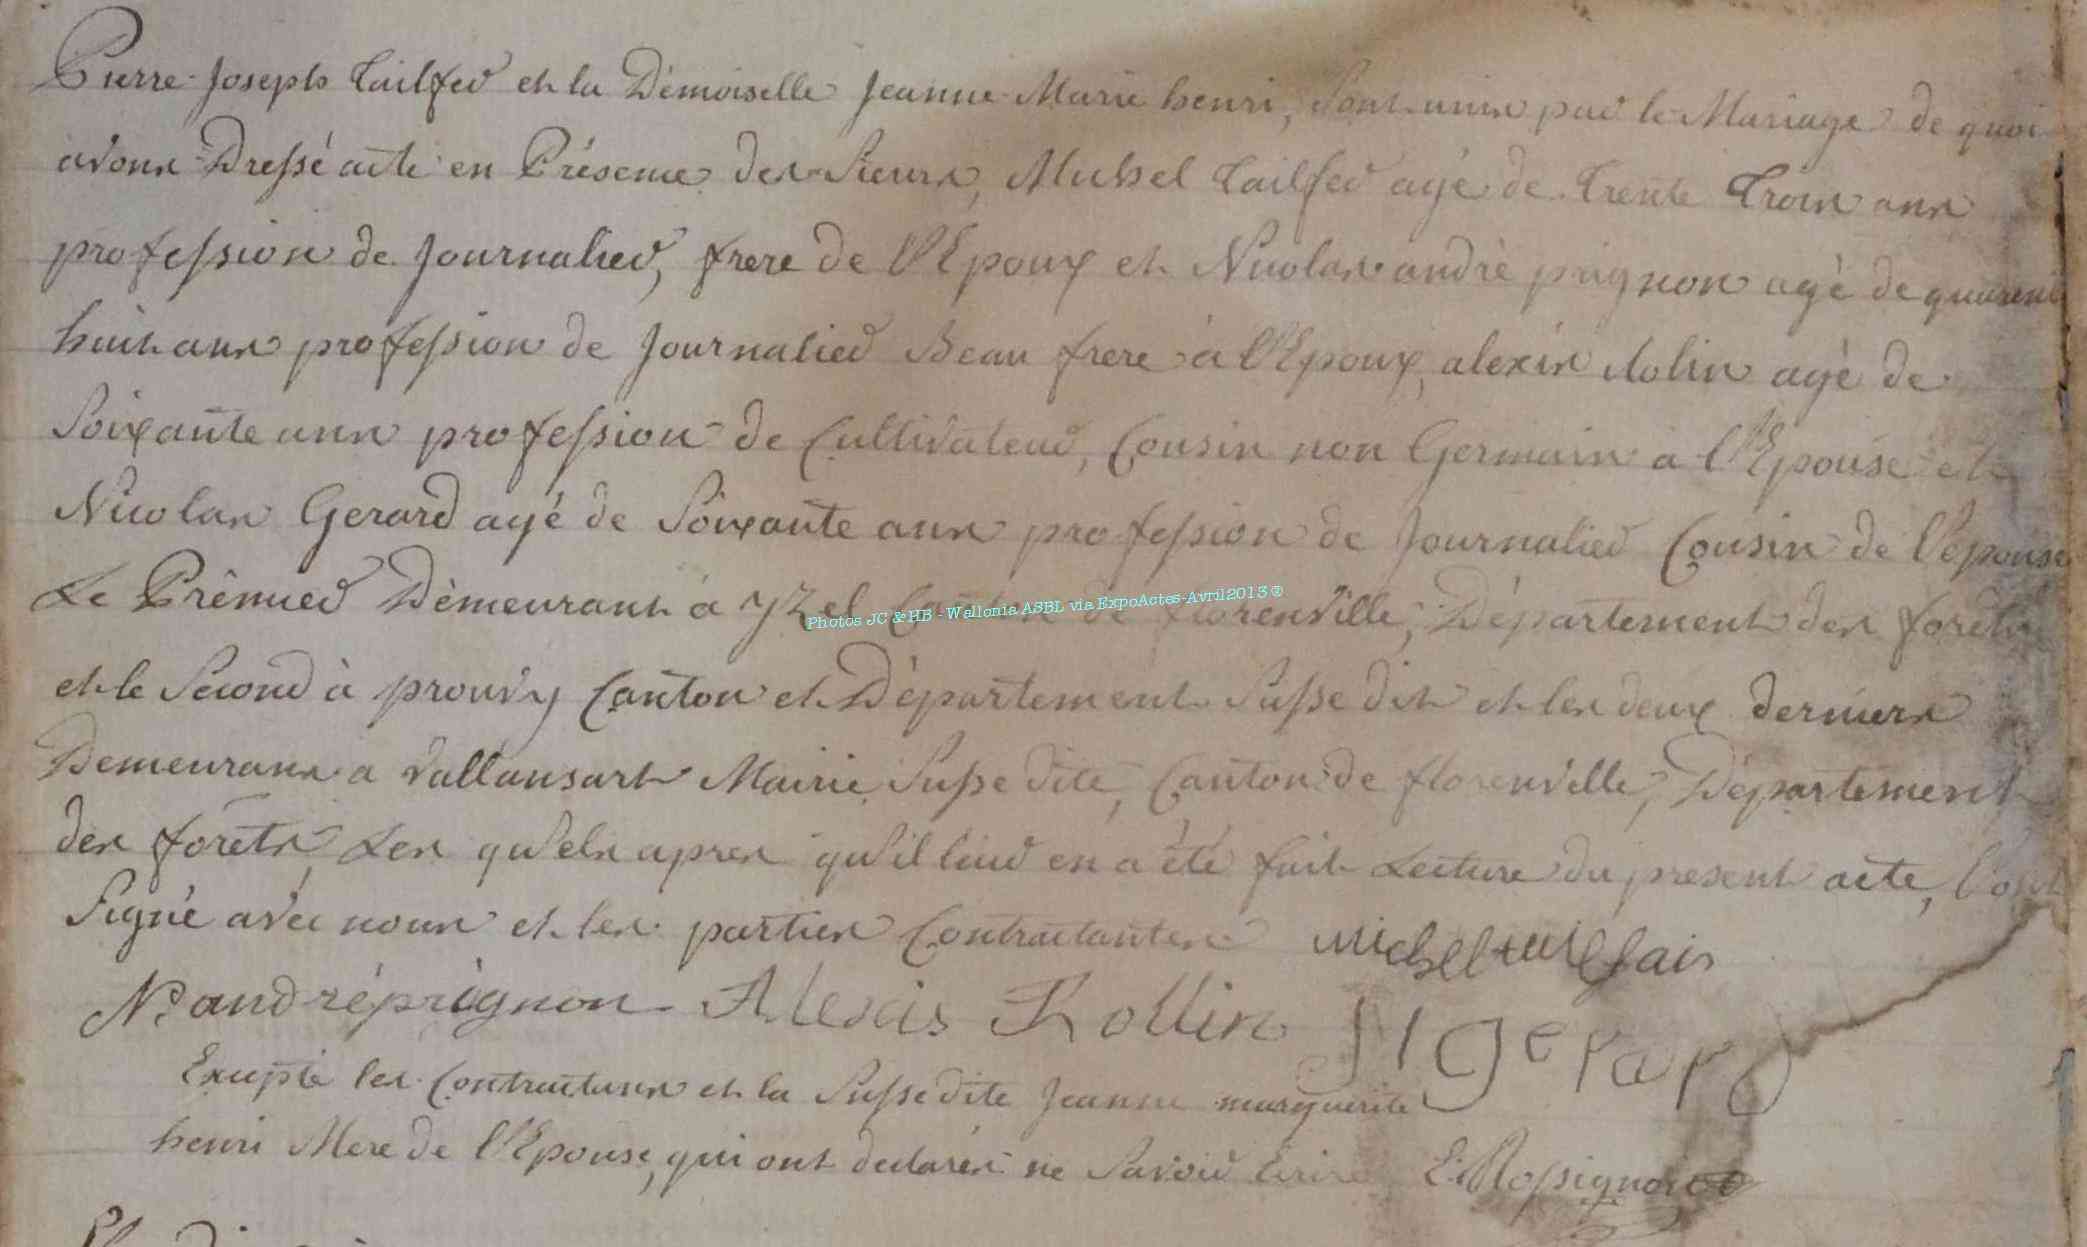 Pierre Joseph Tailfer et la Démoiselle Jeanne Marie henri, Sont unis par le Mariage de quoi
avons Dressé acte en Présence des Sieurs, Michel Tailfer agé de Trente Trois ans
profession de Journalier, frere de l'Epoux et Nicolas andré prignon agé de quarente
huit ans profession de Journalier Beau frere à l'Epoux, alexis Rolin agé de
Soixante ans profession de Cultivateur, Cousin non Germain a l'Epouse et
Nicolas Gerard agé de Soixante ans profession de Journalier Cousin de l'epouse
Le Prêmier Dèmeurant à yzel Canton de florenville, Département des forêts
et le Second à prouvy Canton et Département Susse dit et les deux derniers
Demeurans a vallansart Mairie Susse dite, Canton de florenville, Département
des forêts, Les quels apres qu'il leur en a été fait Lecture du present acte, l'ont
Signé avec nous et les parties Contractantes michel tailfair
Ns andréprignon Alexis Rollin
gerard
Excepté les Contractans et la Susse dite Jeanne marguerite
henri Mere de l'Epouse, qui ont declarés ne Savoir Ecrire E. Rossignon
Photos JC & HB - Wallonia ASBL via ExpoActes-Avril2013 ®